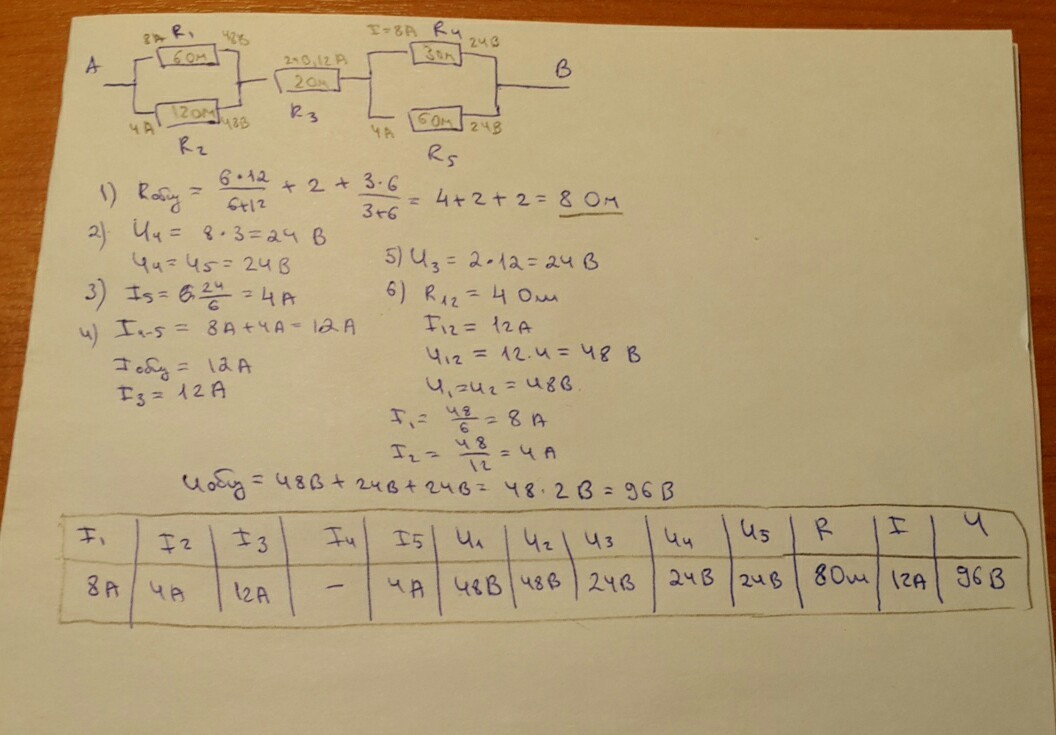 8А R₁ 48В
A
6Ом
12Ом
4А 48В
R₂
24В, 12А
2Ом
R₃
I = 8А R₄ 24В
3Ом
B
6Ом
4А 24В
R₅
1) Rобщ = (6·12)/(6+12) + 2 + (3·6)/(3+6) = 4+2+2 = 8 Ом
2) U₄ = 8·3 = 24 В
U₄ = U₅ = 24В
3) I₅ = 24/6 = 4А
4) I₄₋₅ = 8А+4А = 12А
Iобщ = 12А
I₃ = 12А
5) U₃ = 2·12 = 24В
6) R₁₂ = 4 Ом
I₁₂ = 12А
U₁₂ = 12·4 = 48 В
U₁=U₂ = 48В.
I₁ = 48/6 = 8 А
I₂ = 48/12 = 4А
Uобщ = 48В + 24В + 24В = 48·2 В = 96В
I₁ I₂ I₃ I₄ I₅ U₁ U₂ U₃ U₄ U₅ R I U
8А 4А 12А – 4А 48В 48В 24В 24В 24В 8Ом 12А 96В